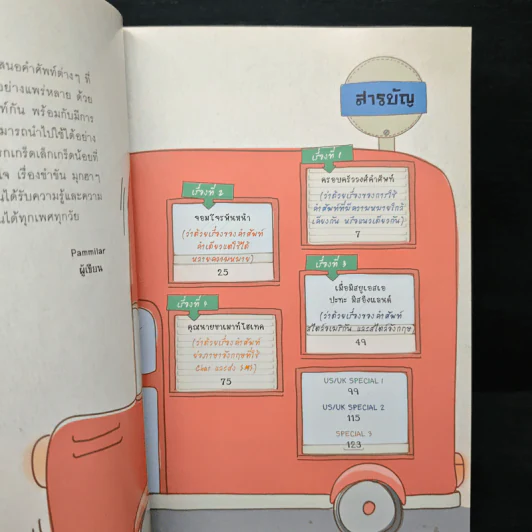 สนอคำศัพท์ต่างๆ ที่
อย่างแพร่หลาย ด้วย
ท์กัน พร้อมกับมีการ
ามารถนำไปใช้ได้อย่าง
รกเกร็ดเล็กเกร็ดน้อยที่
ใจ เรื่องขำขัน มุกฮาๆ
นได้รับความรู้และความ
นได้ทุกเพศทุกวัย
Pammilar
ผู้เขียน
สารบัญ
เรื่องที่ 1
ครอบครัววงศ์คำศัพท์
(ว่าด้วยเรื่องของการใช้
คำศัพท์ที่มีความหมายใกล้
เคียงกัน หรือแนวเดียวกัน)
7
เรื่องที่ 2
จอมโจรพันหน้า
(ว่าด้วยเรื่องของคำศัพท์
คำเดียวแต่ใช้ได้
หลายความหมาย)
25
เรื่องที่ 3
เมื่อมิสยูเอสเอ
ปะทะ มิสอิงแลนด์
(ว่าด้วยเรื่องของคำศัพท์
สไตล์อเมริกัน และสไตล์อังกฤษ)
49
เรื่องที่
คุณนายชาเมาท์ไฮเทค
(ว่าด้วยเรื่องคำศัพท์
ย่อภาษาอังกฤษที่ใช้
Chat และส่ง SMS)
75
US/UK SPECIAL 1
99
US/UK SPECIAL 2
115
SPECIAL 3
123